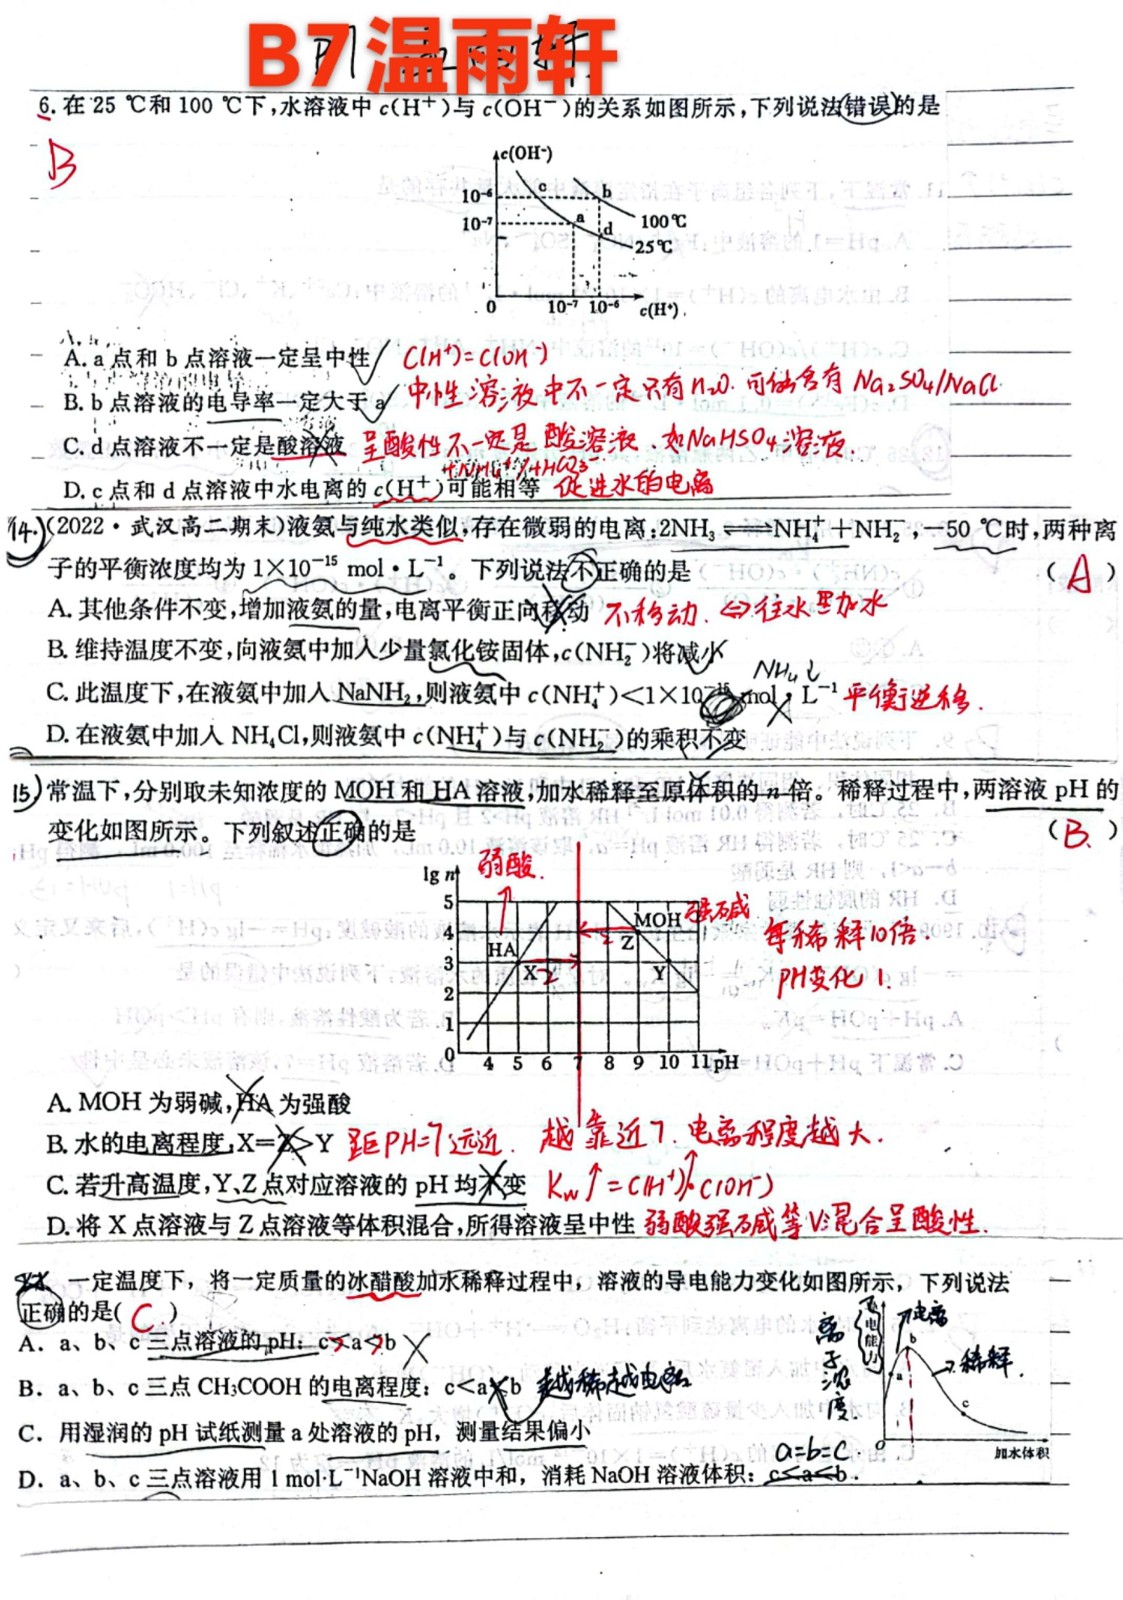 B7温雨轩
6. 在 25 ℃和 100 ℃下,水溶液中 c(H⁺)与 c(OH⁻)的关系如图所示,下列说法错误的是
B
c(OH⁻)
10⁻⁶ c b
10⁻⁷ a 100℃
d 25℃
0 10⁻⁷ 10⁻⁶ c(H⁺)
A. a 点和 b 点溶液一定呈中性 C(H⁺)=C(OH⁻)
B. b 点溶液的电导率一定大于 a 中性溶液中不一定只有H₂O. 可能含有Na₂SO₄/NaCl
C. d 点溶液不一定是酸溶液 呈酸性不一定是酸溶液、如NaHSO₄溶液
D. c 点和 d 点溶液中水电离的 c(H⁺)可能相等 促进水的电离
14. (2022·武汉高二期末)液氨与纯水类似,存在微弱的电离:2NH₃⇌NH₄⁺+NH₂⁻,−50 ℃时,两种离
子的平衡浓度均为 1×10⁻¹⁵ mol·L⁻¹。下列说法不正确的是 (A)
A. 其他条件不变,增加液氨的量,电离平衡正向移动 不移动. ⇔往水里加水
B. 维持温度不变,向液氨中加入少量氯化铵固体,c(NH₂⁻)将减小
NH₄↓
C. 此温度下,在液氨中加入 NaNH₂,则液氨中 c(NH₄⁺)<1×10⁻¹⁵ mol·L⁻¹ 平衡逆移.
D. 在液氨中加入 NH₄Cl,则液氨中 c(NH₄⁺)与 c(NH₂⁻)的乘积不变
15) 常温下,分别取未知浓度的 MOH 和 HA 溶液,加水稀释至原体积的 n 倍。稀释过程中,两溶液 pH 的
变化如图所示。下列叙述正确的是 (B.)
lg n 弱酸.
5 MOH 强碱
4 HA Z 2 每稀释10倍.
3 X 2 Y PH变化 1.
2
1
0 4 5 6 7 8 9 10 11 pH
A. MOH 为弱碱,HA 为强酸
B. 水的电离程度:X=Z>Y 距PH=7远近. 越靠近7. 电离程度越大.
C. 若升高温度,Y、Z 点对应溶液的 pH 均不变 Kw↑=C(H⁺)↑·C(OH⁻)
D. 将 X 点溶液与 Z 点溶液等体积混合,所得溶液呈中性 弱酸强碱等V混合呈酸性.
一定温度下，将一定质量的冰醋酸加水稀释过程中，溶液的导电能力变化如图所示，下列说法
正确的是( C )
A．a、b、c 三点溶液的 pH：c<a<b
B．a、b、c 三点 CH₃COOH 的电离程度：c<a<b 越稀越电离
C．用湿润的 pH 试纸测量 a 处溶液的 pH，测量结果偏小
D．a、b、c 三点溶液用 1 mol·L⁻¹NaOH 溶液中和，消耗 NaOH 溶液体积：c<a<b.
a=b=c
离子浓度
导电能力
电离
稀释.
a b c
0 加水体积